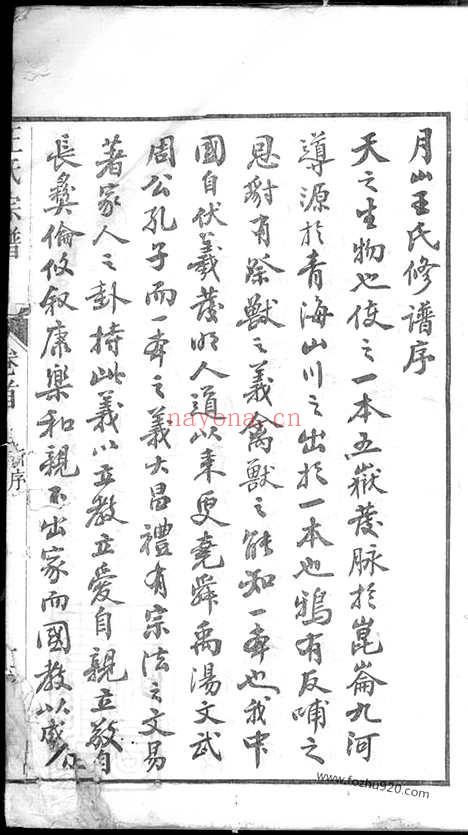 月山王氏修譜序
天之生物也使之一本五嶽發脉於崑崙九河
導源於青海山川之出於一本也鴉有反哺之
恩豺有祭獸之義禽獸之能知一本也我中
國自伏羲發明人道以來更堯舜禹湯文武
周公孔子而一本之義大昌禮有宗法之文易
著家人之卦持此義以立教立愛自親立敬自
長彝倫攸敘康樂和親不出家而國教以成
王氏宗譜
卷首
序
nayona.cn
www.fozhu920.com